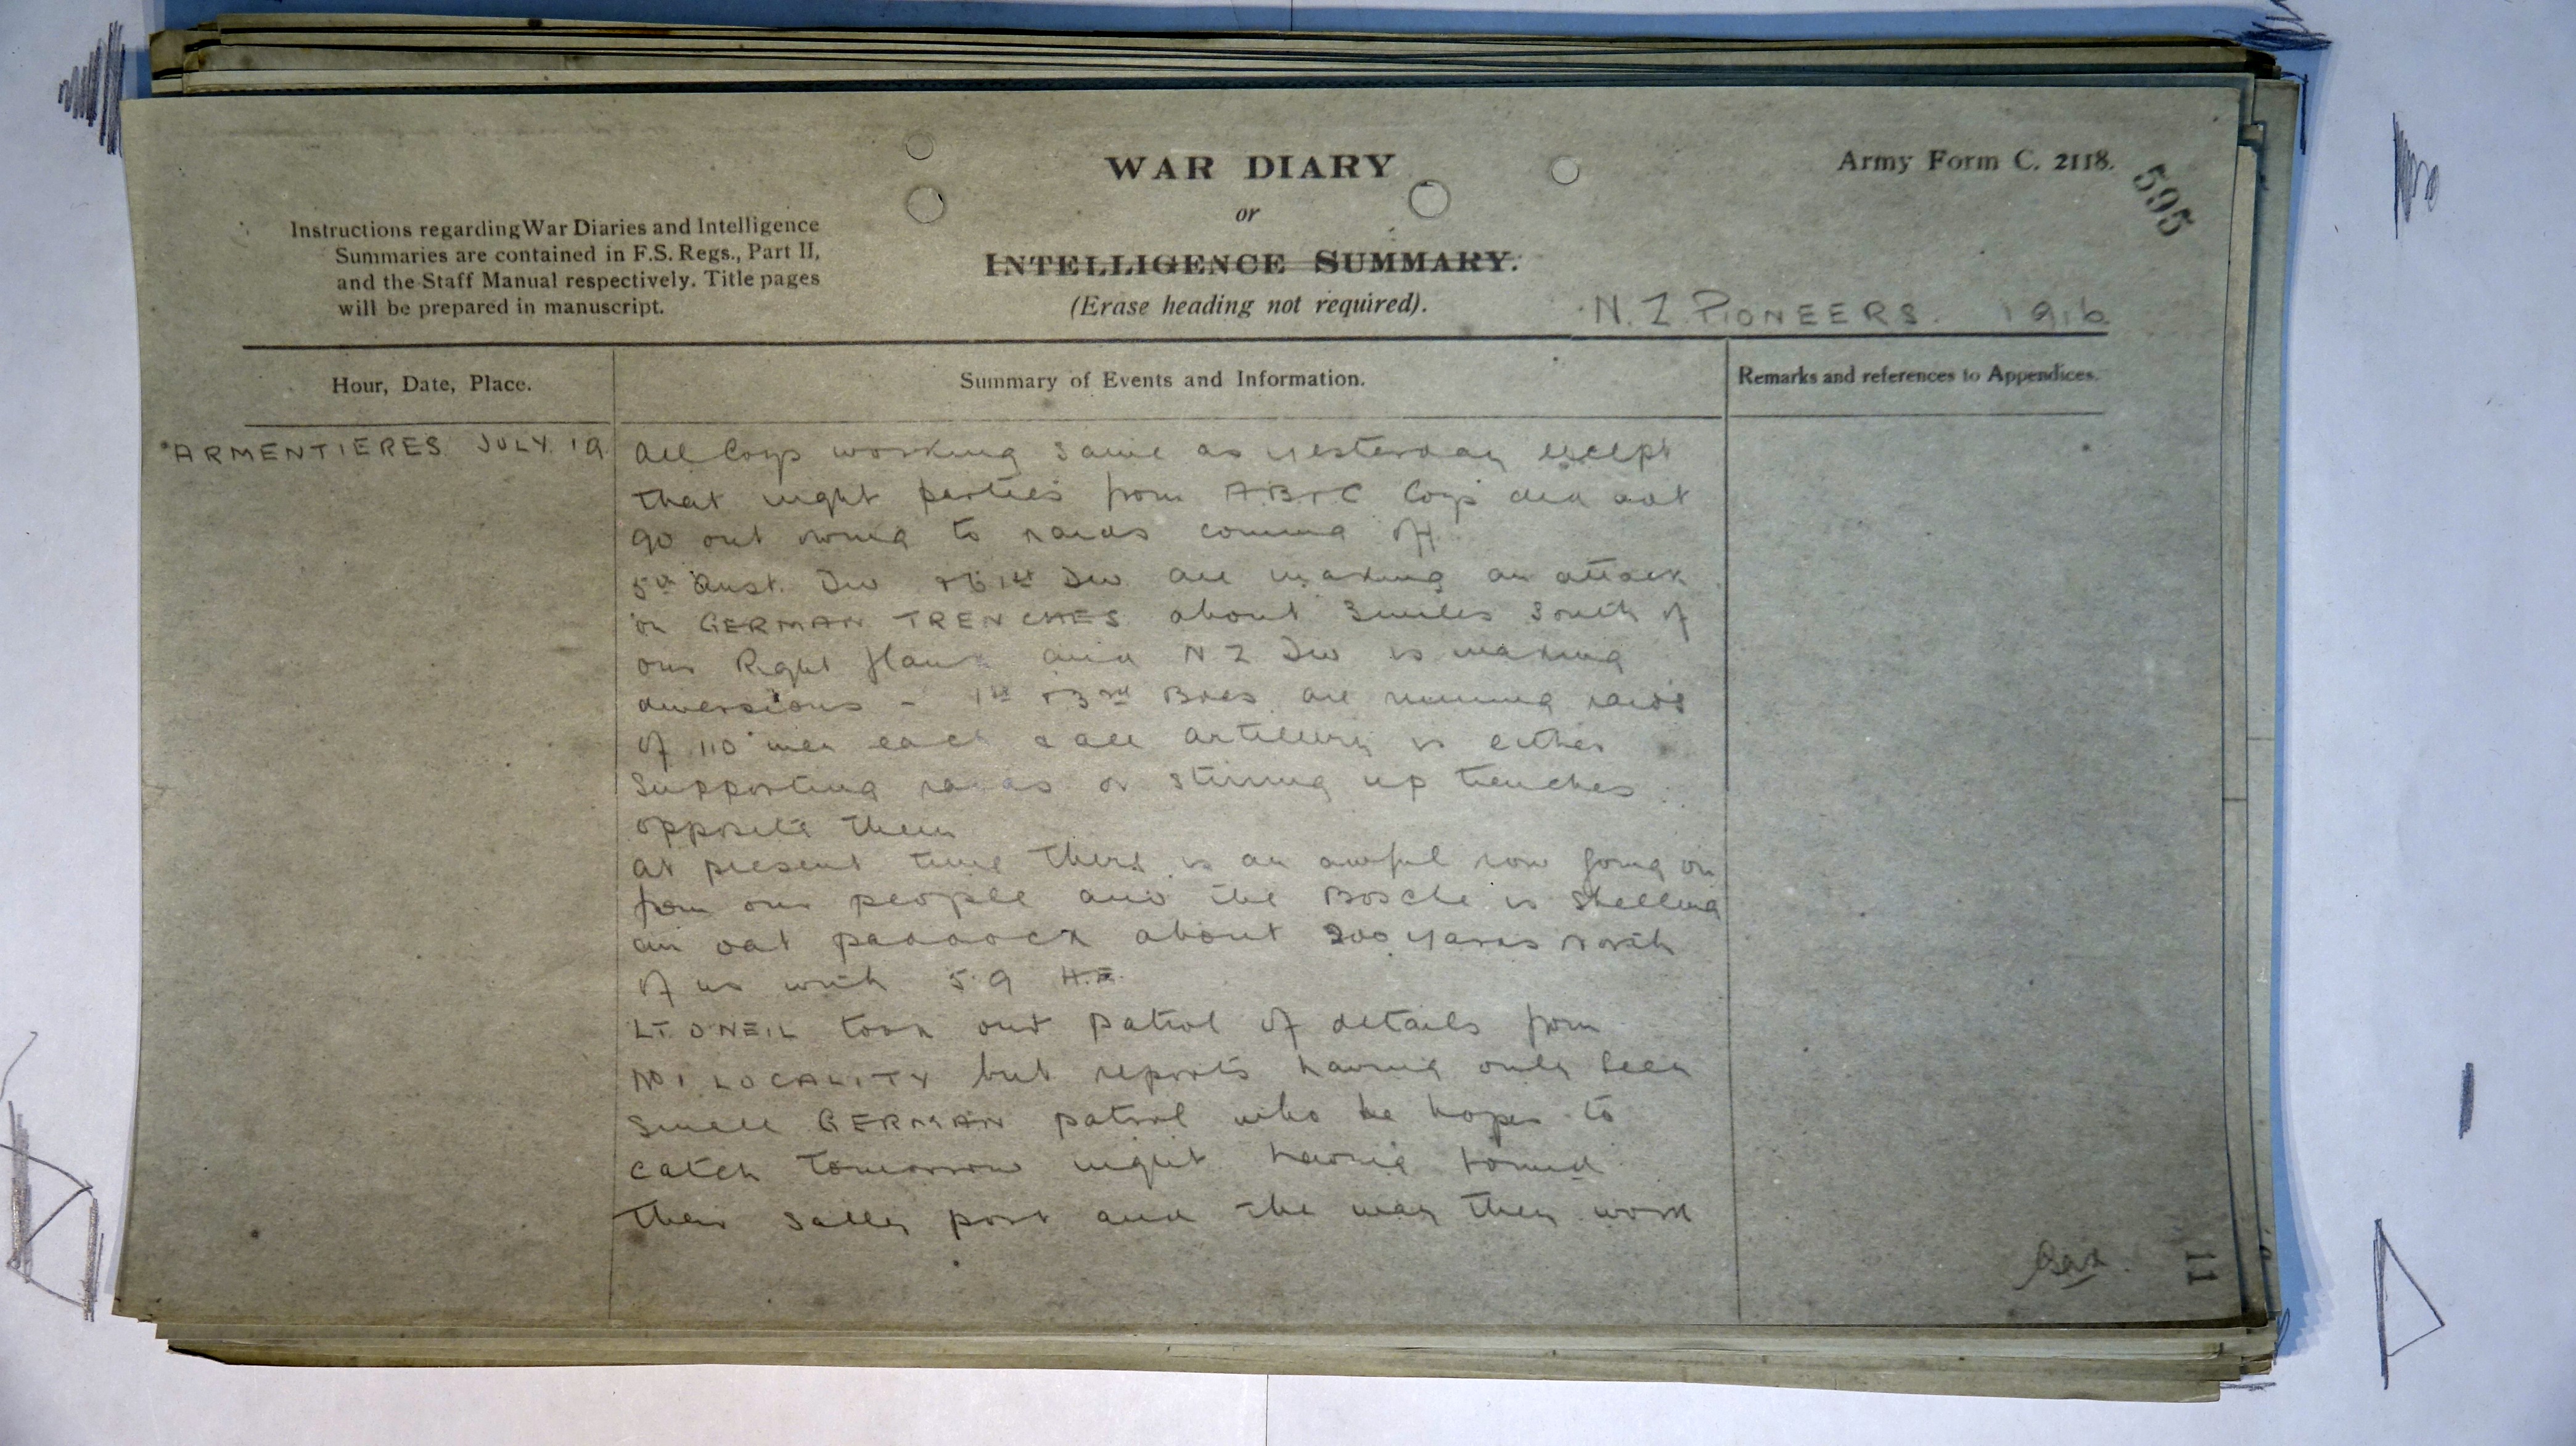 WAR DIARY
or
INTELLIGENCE SUMMARY.
(Erase heading not required).
Army Form C. 2118.
595
Instructions regarding War Diaries and Intelligence
Summaries are contained in F.S. Regs., Part II,
and the Staff Manual respectively. Title pages
will be prepared in manuscript.
N.Z. PIONEERS. 1916
Hour, Date, Place.
Summary of Events and Information.
Remarks and references to Appendices.
ARMENTIERES JULY. 19.
All Coys working same as yesterday except
that night parties from A.B & C Coys did not
go out owing to raids coming off.
5th Aust. Div & 61st Div are making an attack
on GERMAN TRENCHES about 3 miles South of
our Right flank and N Z Div is making
diversions - 1st & 3rd Bdes are running raids
of 110 men each & all artillery is either
supporting raids or stirring up trenches
opposite them
At present time there is an awful row going on
from our people and the Bosche is shelling
an oat paddock about 200 yards North
of us with 5.9 H.E.
LT. O'NEIL took out patrol of details from
No 1 LOCALITY but reports having only seen
small GERMAN patrol who he hopes to
catch tomorrow night having found
their sally port and the way they work
11